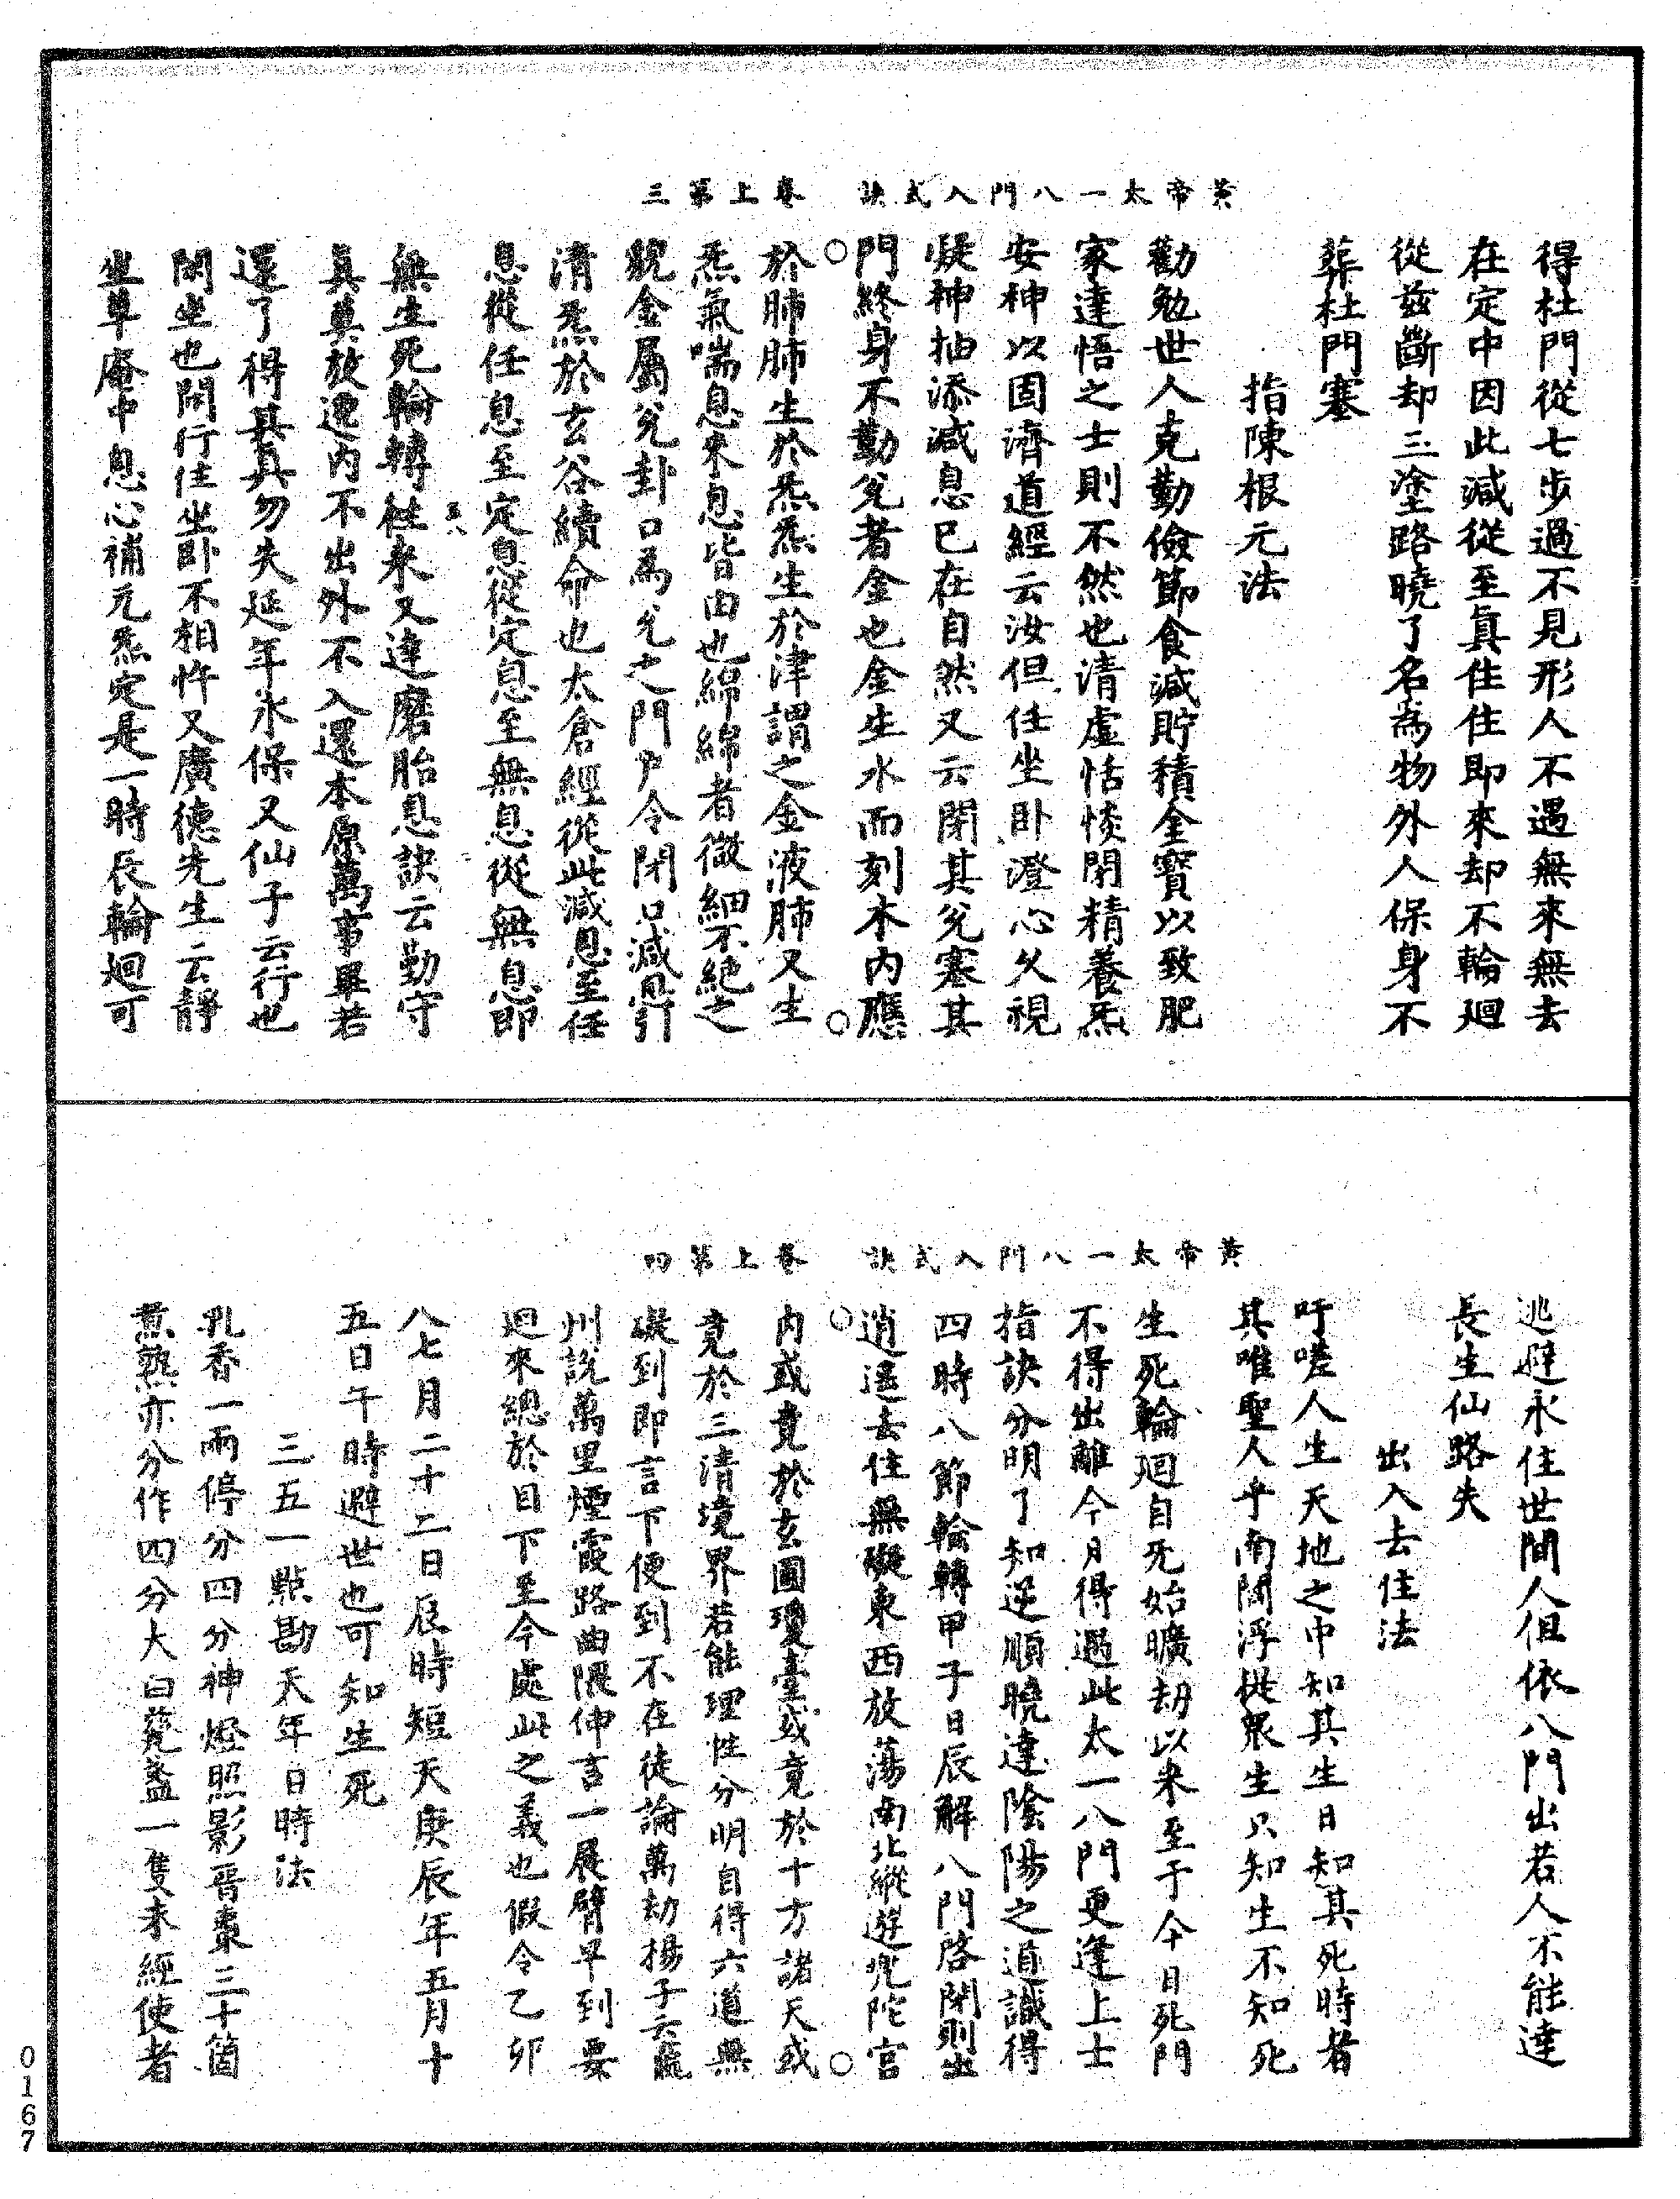 黃帝太一八門入式訣　卷上第三
得杜門從七步過不見形人不遇無來無去
在定中因此減從至眞住住即來却不輪廻
從茲斷却三塗路曉了名爲物外人保身不
葬杜門塞
指陳根元法
勸勉世人克勤儉節食減貯積金寶以致肥
家達悟之士則不然也清虛恬惔閉精養炁
安神以固濟道經云汝但任坐卧澄心久視
凝神抽添減息已在自然又云閉其兊塞其
門終身不勤兊者金也金生水而刻木内應
於肺肺生於炁炁生於津謂之金液肺又生
炁氣喘息來息皆由也綿綿者微細不絶之
貌金屬兊卦口爲兊之門户令閉口減鼻引
清炁於玄谷續命也太倉經從此減息至任
息從任息至定息從定息至無息從無息即
無生死輪轉徃來又達磨胎息訣云勤守
眞莫放逸内不出外不入還本原萬事畢若
還了得其眞勿失延年永保又仙子云行也
閑坐也閑行住坐卧不相忤又廣德先生云靜
坐草庵中息心補元炁定是一時辰輪廻可
黃帝太一八門入式訣　卷上第四
逃避永住世間人但依八門出若人不能達
長生仙路失
出入去住法
吁嗟人生天地之中知其生日知其死時者
其唯聖人乎南閻浮提衆生只知生不知死
生死輪廻自无始曠劫以來至于今日死門
不得出離今月得遇此太一八門更逢上士
指訣分明了知逆順曉達陰陽之道識得
四時八節輪轉甲子日辰解八門啓閉則出
逍遥去住無礙東西放蕩南北縱遊兜陀宮
内或竟於玄圃瓊臺或竟於十方諸天或
竟於三清境界若能理性分明自得六道無
礙到即言下便到不在徒論萬劫楊子云龍
州說萬里煙霞路曲隈伸言一展臂早到要
迴來總於目下至今處此之義也假令乙卯
八七月二十二日辰時短天庚辰年五月十
五日午時避世也可知生死
三五一點勘天年日時法
乳香一兩停分四分神燈照影晋棗三十箇
煮熟亦分作四分大白甆盞一隻未經使者
0167